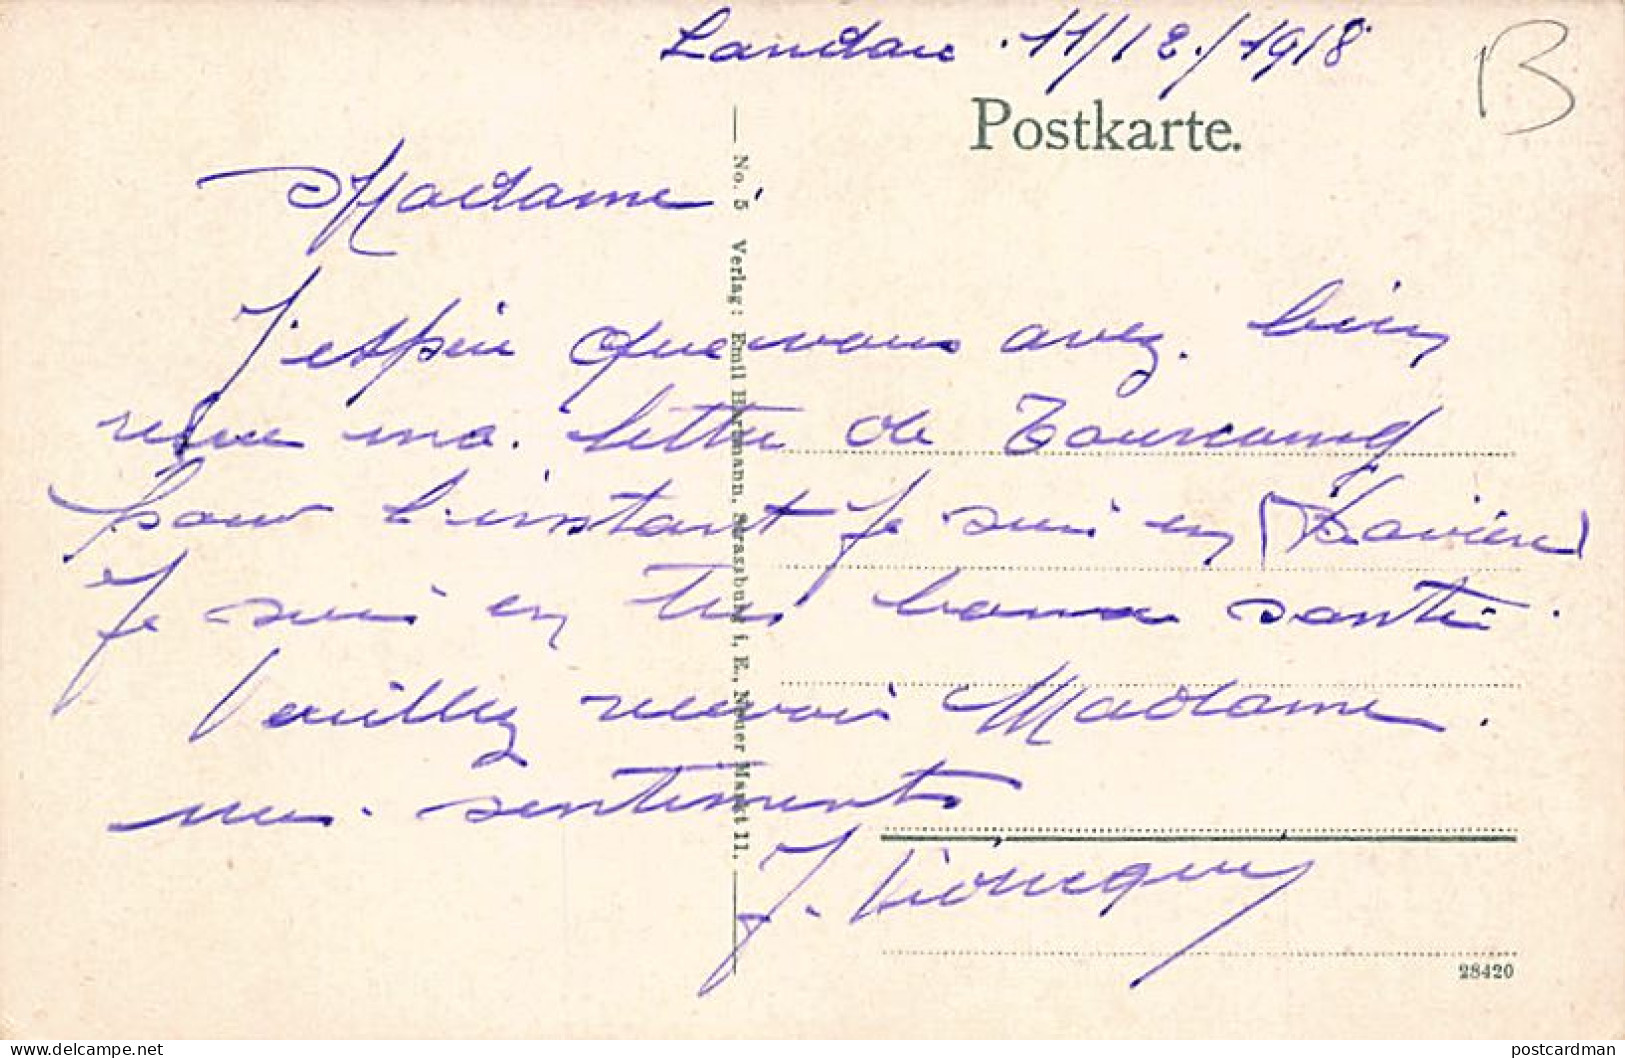 Landau . 11/12/1918
B
Postkarte.
Madame,
J'espère que vous avez bien
reçue ma lettre de Tourcoing
pour l'instant je suis en (Bavière)
Je suis en très bonne santé.
Veuillez recevoir Madame.
mes sentiments
J.
No. 5 Verlag: Emil Hartmann, Strassburg i. E., Neuer Markt 11.
28420
delcampe.net
postcardman